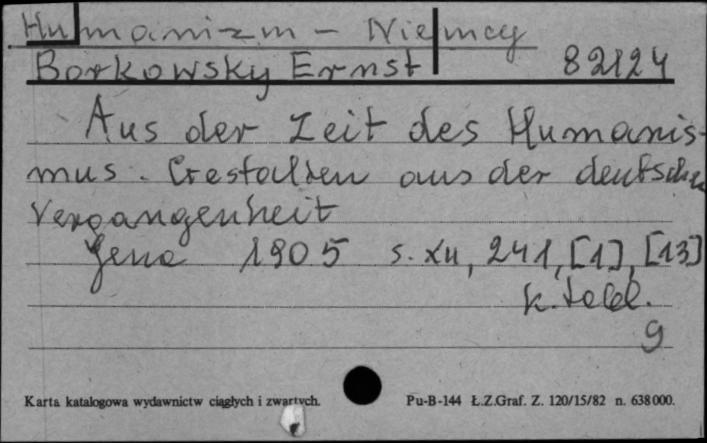 Humanizm - Niemcy
Borkowsky Ernst 82124
Aus der Zeit des Humanis-
mus. Gestalten aus der deutschen
Vergangenheit
Jena 1905 s. XII, 241, [1], [13]
k. tabl.
9
Karta katalogowa wydawnictw ciągłych i zwartych. Pu-B-144 Ł.Z.Graf. Z. 120/15/82 n. 638000.